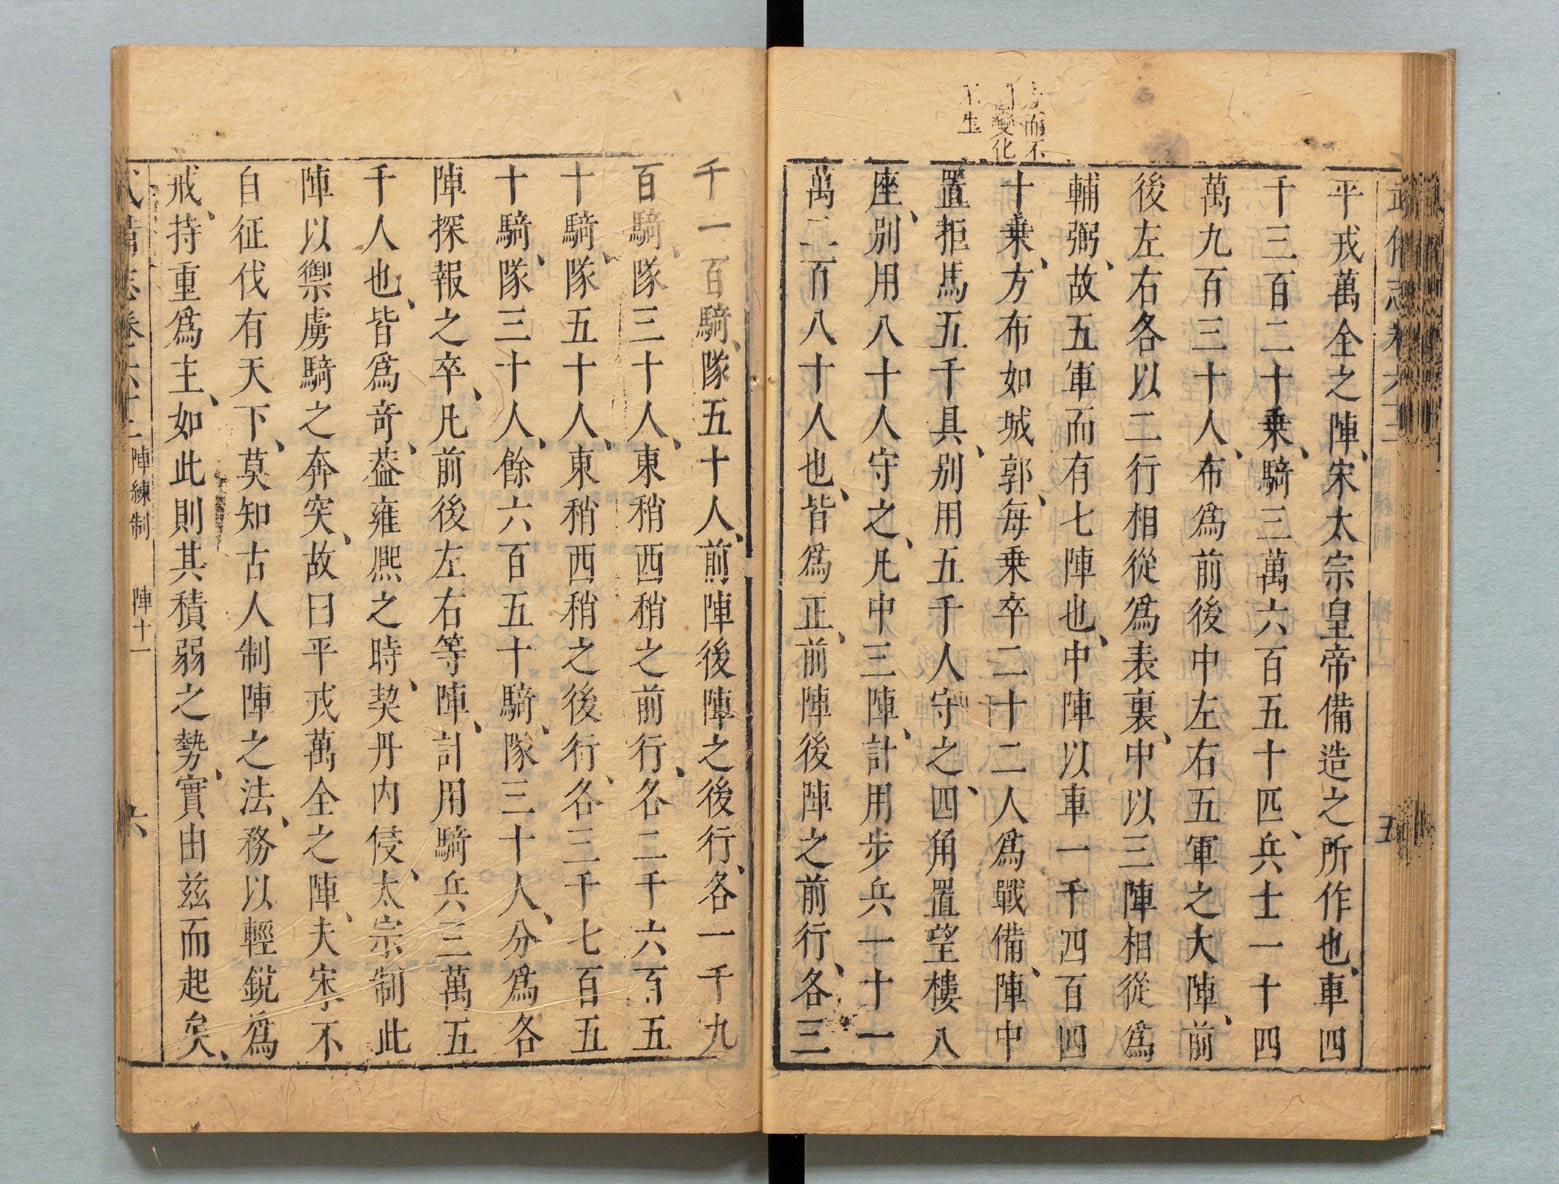 武備志卷六十三
五
平戎萬全之陣宋太宗皇帝備造之所作也車四
千三百二十乗騎三萬六百五十匹兵士一十四
萬九百三十人布爲前後中左右五軍之大陣前
後左右各以二行相從爲表裏中以三陣相從爲
輔弼故五軍而有七陣也中陣以車一千四百四
十乗方布如城郭每乗卒二十二人爲戰備陣中
置拒馬五千具别用五千人守之四角置望樓八
座别用八十人守之凡中三陣計用步兵一十一
萬二百八十人也皆爲正前陣後陣之前行各三
而不
變化
生
千一百騎隊五十人前陣後陣之後行各一千九
百騎隊三十人東稍西稍之前行各二千六百五
十騎隊五十人東稍西稍之後行各三千七百五
十騎隊三十人餘六百五十騎隊三十人分爲各
陣探報之卒凡前後左右等陣計用騎兵三萬五
千人也皆爲竒葢雍熈之時契丹内侵太宗制此
陣以禦虜騎之奔突故曰平戎萬全之陣夫宋不
自征伐有天下莫知古人制陣之法務以輕銳爲
戒持重爲主如此則其積弱之勢實由兹而起矣
武備志卷六十三 陣練制 陣十一 六